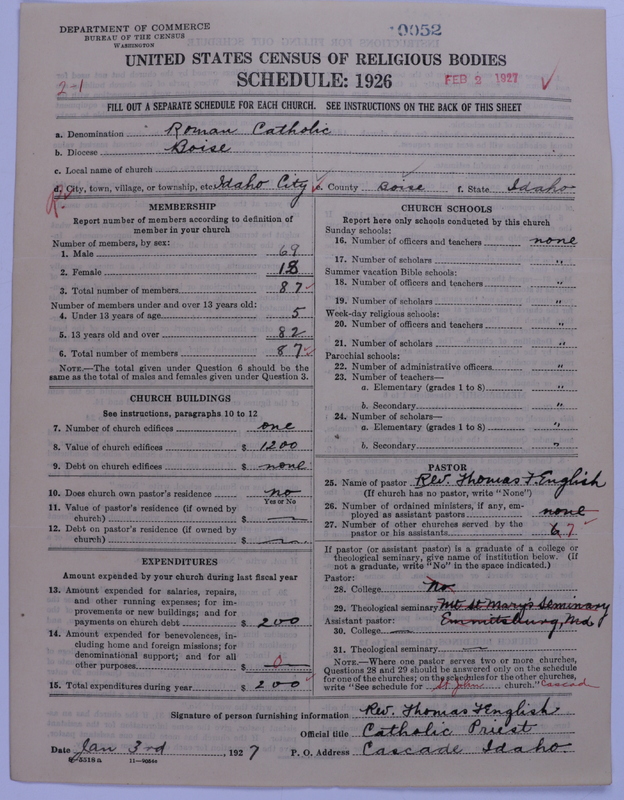 DEPARTMENT OF COMMERCE
BUREAU OF THE CENSUS
WASHINGTON
0052
UNITED STATES CENSUS OF RELIGIOUS BODIES
SCHEDULE: 1926
FEB 2 1927
2-1
FILL OUT A SEPARATE SCHEDULE FOR EACH CHURCH. SEE INSTRUCTIONS ON THE BACK OF THIS SHEET
a. Denomination Roman Catholic
b. Diocese Boise
c. Local name of church
d. City, town, village, or township, etc. Idaho City e. County Boise f. State Idaho
MEMBERSHIP
Report number of members according to definition of member in your church
Number of members, by sex:
1. Male 69
2. Female 18
3. Total number of members 87
Number of members under and over 13 years old:
4. Under 13 years of age 5
5. 13 years old and over 82
6. Total number of members 87
NOTE.—The total given under Question 6 should be the
same as the total of males and females given under Question 3.
CHURCH BUILDINGS
See instructions, paragraphs 10 to 12
7. Number of church edifices one
8. Value of church edifices $ 1200
9. Debt on church edifices $ none
10. Does church own pastor's residence no
Yes or No
11. Value of pastor's residence (if owned by
church) $ —
12. Debt on pastor's residence (if owned by
church) $ —
EXPENDITURES
Amount expended by your church during last fiscal year
13. Amount expended for salaries, repairs,
and other running expenses; for im-
provements or new buildings; and for
payments on church debt $ 200
14. Amount expended for benevolences, in-
cluding home and foreign missions; for
denominational support; and for all
other purposes $ 0
15. Total expenditures during year $ 200
CHURCH SCHOOLS
Report here only schools conducted by this church
Sunday schools:
16. Number of officers and teachers none
17. Number of scholars "
Summer vacation Bible schools:
18. Number of officers and teachers "
19. Number of scholars "
Week-day religious schools:
20. Number of officers and teachers "
21. Number of scholars "
Parochial schools:
22. Number of administrative officers "
23. Number of teachers—
a. Elementary (grades 1 to 8) "
b. Secondary "
24. Number of scholars—
a. Elementary (grades 1 to 8) "
b. Secondary "
PASTOR
25. Name of pastor Rev. Thomas F. English
(If church has no pastor, write "None")
26. Number of ordained ministers, if any, em-
ployed as assistant pastors none
27. Number of other churches served by the
pastor or his assistants 7
If pastor (or assistant pastor) is a graduate of a college or
theological seminary, give name of institution below. (If
not a graduate, write "No" in the space indicated.)
Pastor:
28. College No
29. Theological seminary Mt St Mary's Seminary
Assistant pastor: Emmitsburg, Md
30. College —
31. Theological seminary —
NOTE.—Where one pastor serves two or more churches,
Questions 28 and 29 should be answered only on the schedule
for one of the churches; on the schedules for the other churches,
write "See schedule for St John church." Cascad
Signature of person furnishing information Rev. Thomas F English
Official title Catholic Priest
Date Jan 3rd, 1927 P. O. Address Cascade Idaho
8-5518a 11-9054a